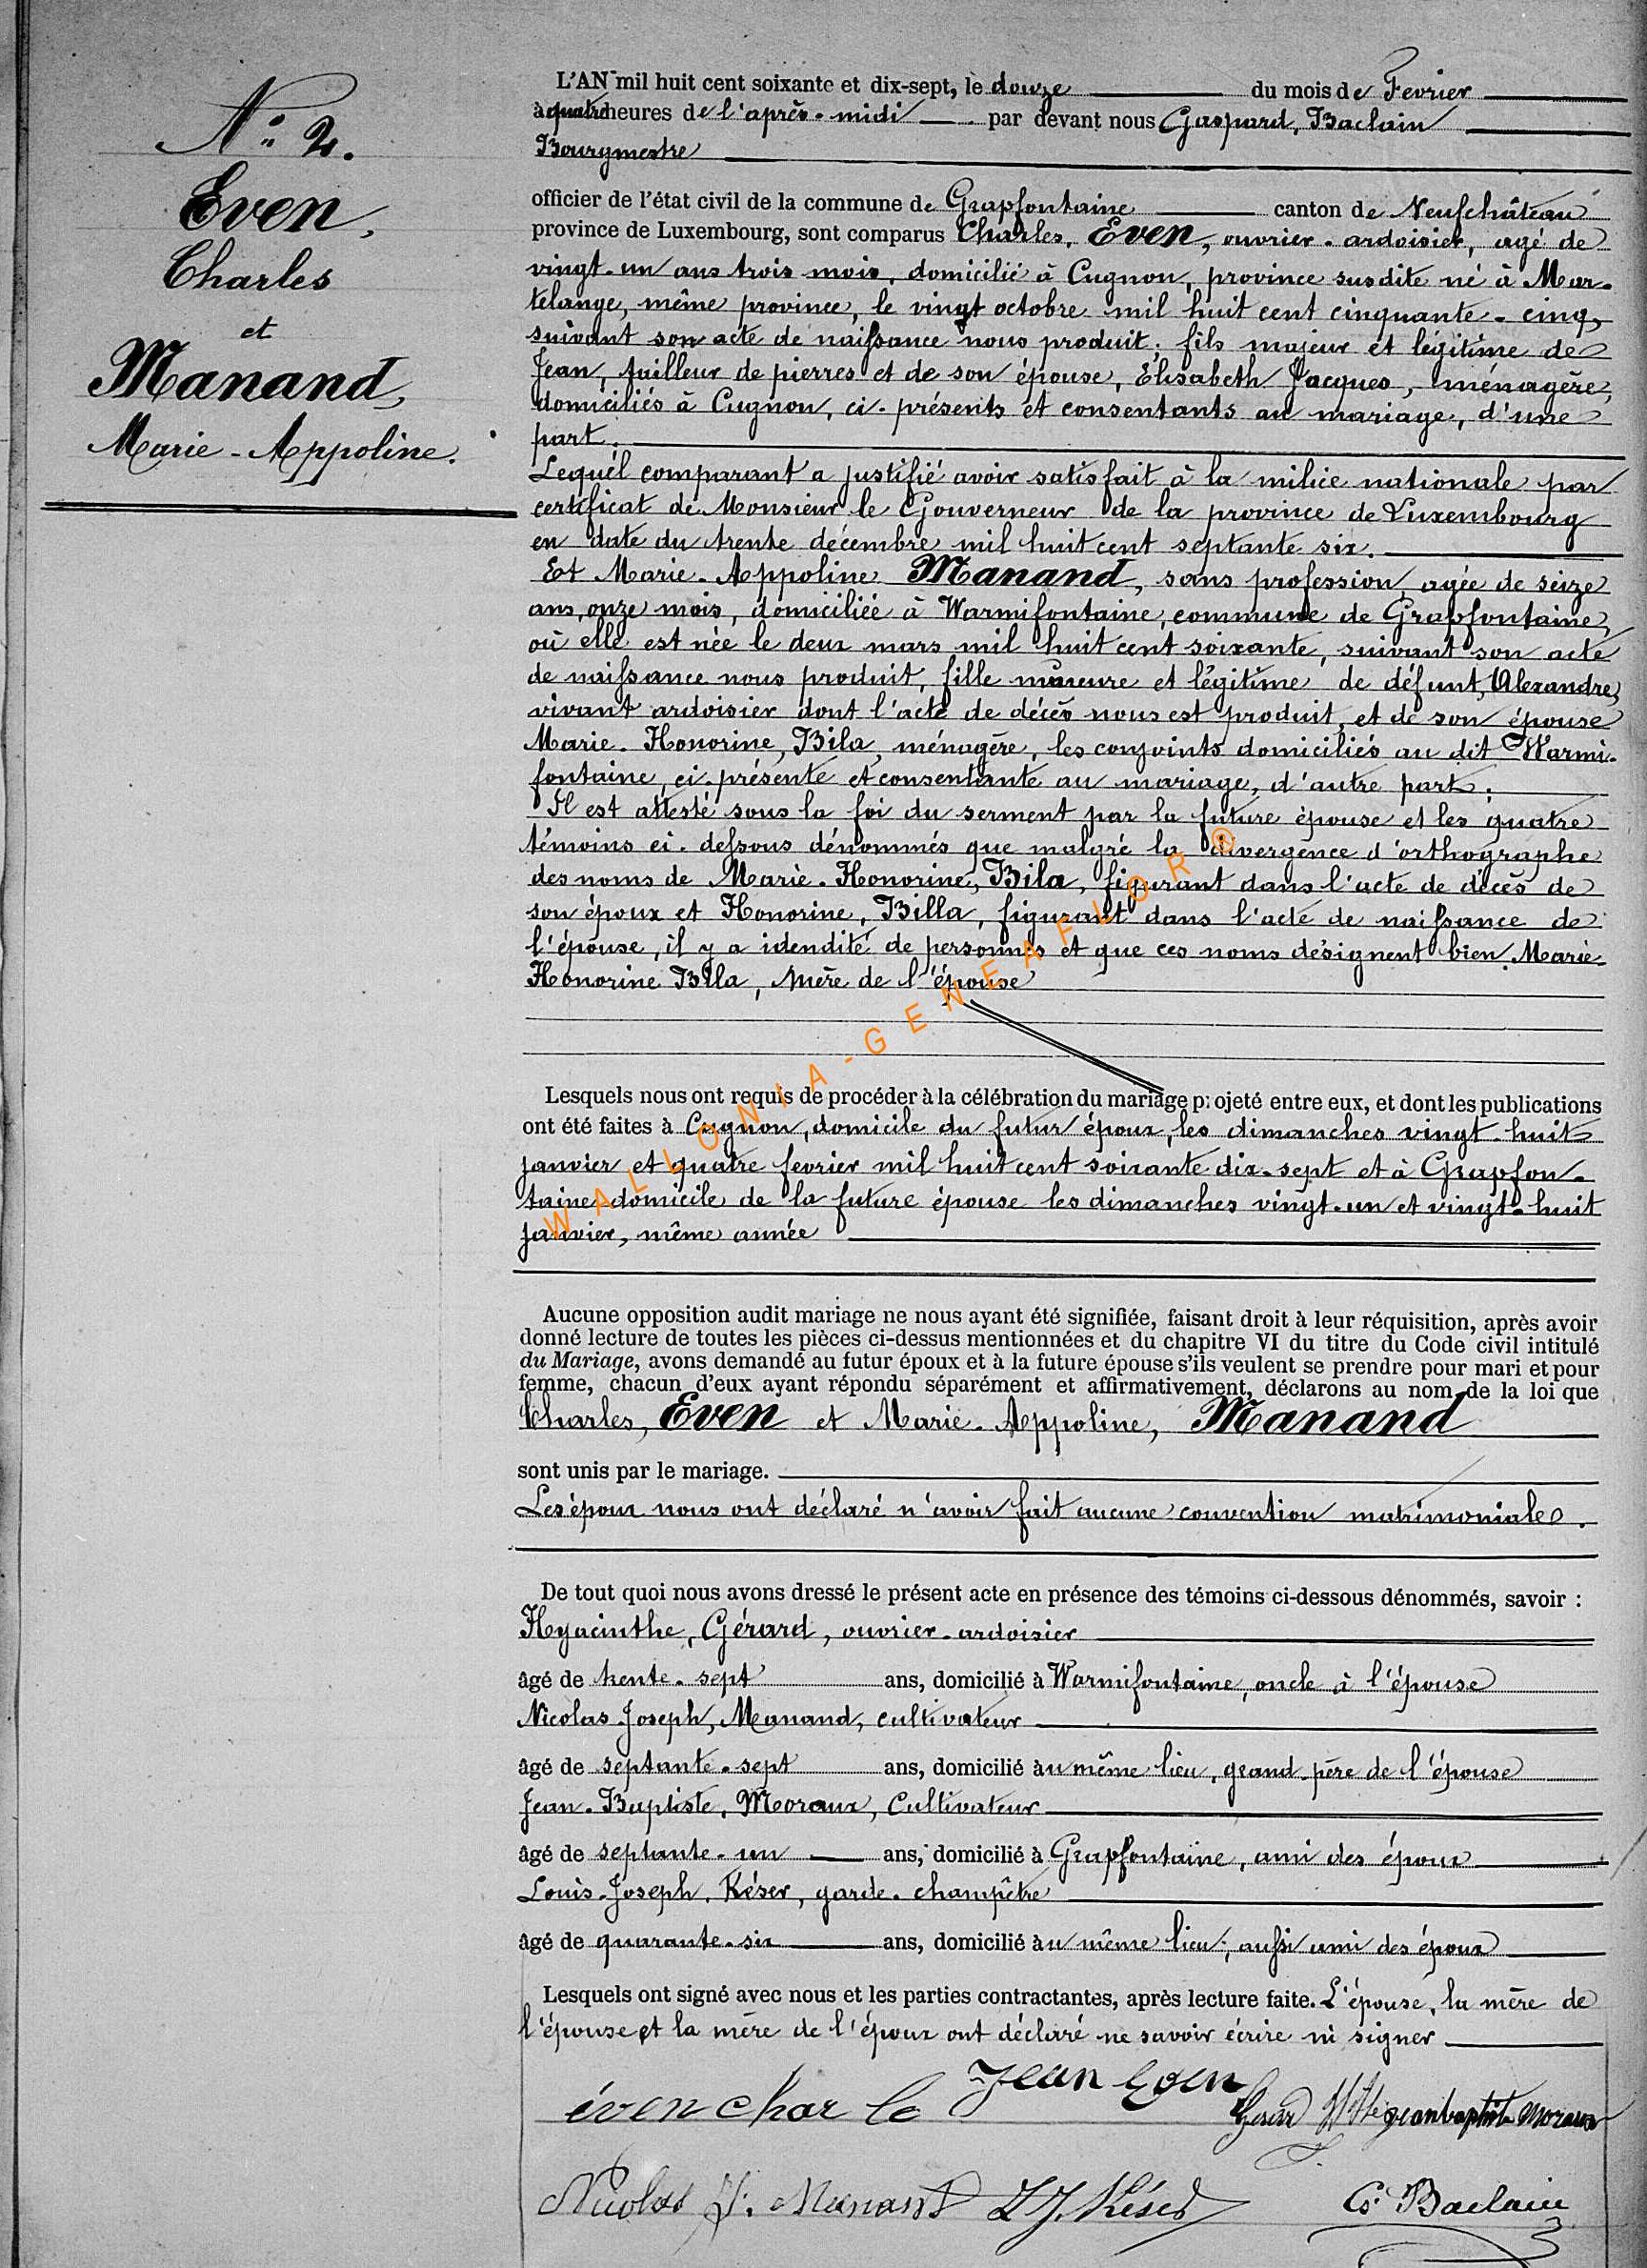 N° 2.
Even,
Charles
et
Manand,
Marie-Appoline.
L'AN mil huit cent soixante et dix-sept, le douze du mois de Fevrier
à quatre heures de l'après-midi par devant nous Gaspard, Baclain
Bourgmestre
officier de l'état civil de la commune de Grapfontaine canton de Neufchâteau
province de Luxembourg, sont comparus Charles, Even, ouvrier-ardoisier, agé de
vingt-un ans trois mois, domicilié à Cugnon, province susdite né à Mar-
telange, même province, le vingt octobre mil huit cent cinquante-cinq,
suivant son acte de naissance nous produit, fils majeur et légitime de
Jean, tailleur de pierres et de son épouse, Elisabeth Jacques, ménagère,
domiciliés à Cugnon, ci-présents et consentants au mariage, d'une
part.
Lequel comparant a justifié avoir satisfait à la milice nationale par
certificat de Monsieur le Gouverneur de la province de Luxembourg
en date du trente décembre mil huit cent septante six.
Et Marie-Appoline Manand, sans profession, agée de seize
ans, onze mois, domiciliée à Warmifontaine, commune de Grapfontaine,
où elle est née le deux mars mil huit cent soixante, suivant son acte
de naissance nous produit, fille mineure et légitime de défunt, Alexandre,
vivant ardoisier dont l'acte de décès nous est produit, et de son épouse
Marie-Honorine, Bila, ménagère, les conjoints domiciliés au dit Warmi-
fontaine, ci-présente et consentante au mariage, d'autre part.
Il est attesté sous la foi du serment par la future épouse et les quatre
témoins ci-dessous dénommés que malgré la divergence d'orthographe
des noms de Marie-Honorine, Bila, figurant dans l'acte de décès de
son époux et Honorine, Billa, figurant dans l'acte de naissance de
l'épouse, il y a idendité de personnes et que ces noms désignent bien Marie-
Honorine Bila, mère de l'épouse
WALLONIA-GENEAFLOR®
Lesquels nous ont requis de procéder à la célébration du mariage projeté entre eux, et dont les publications
ont été faites à Cugnon, domicile du futur époux, les dimanches vingt-huit
janvier et quatre fevrier mil huit cent soixante dix-sept et à Grapfon-
taine domicile de la future épouse les dimanches vingt-un et vingt-huit
janvier, même année
Aucune opposition audit mariage ne nous ayant été signifiée, faisant droit à leur réquisition, après avoir
donné lecture de toutes les pièces ci-dessus mentionnées et du chapitre VI du titre du Code civil intitulé
du Mariage, avons demandé au futur époux et à la future épouse s'ils veulent se prendre pour mari et pour
femme, chacun d'eux ayant répondu séparément et affirmativement, déclarons au nom de la loi que
Charles, Even et Marie-Appoline, Manand
sont unis par le mariage.
Les époux nous ont déclaré n'avoir fait aucune convention matrimoniale.
De tout quoi nous avons dressé le présent acte en présence des témoins ci-dessous dénommés, savoir :
Hyacinthe, Gérard, ouvrier-ardoisier
âgé de trente-sept ans, domicilié à Warmifontaine, oncle à l'épouse
Nicolas-Joseph, Manand, cultivateur
âgé de septante-sept ans, domicilié au même lieu, grand-père de l'épouse
Jean-Baptiste, Moraux, Cultivateur
âgé de septante-un ans, domicilié à Grapfontaine, ami des époux
Louis-Joseph, Késer, garde-champêtre
âgé de quarante-six ans, domicilié au même lieu, aussi ami des époux
Lesquels ont signé avec nous et les parties contractantes, après lecture faite. L'épouse, la mère de
l'épouse et la mère de l'époux ont déclaré ne savoir écrire ni signer
Jean Even
éven char le
jeanbaptiste moraux
Nicolas J. Manand L J Késer G. Baclain